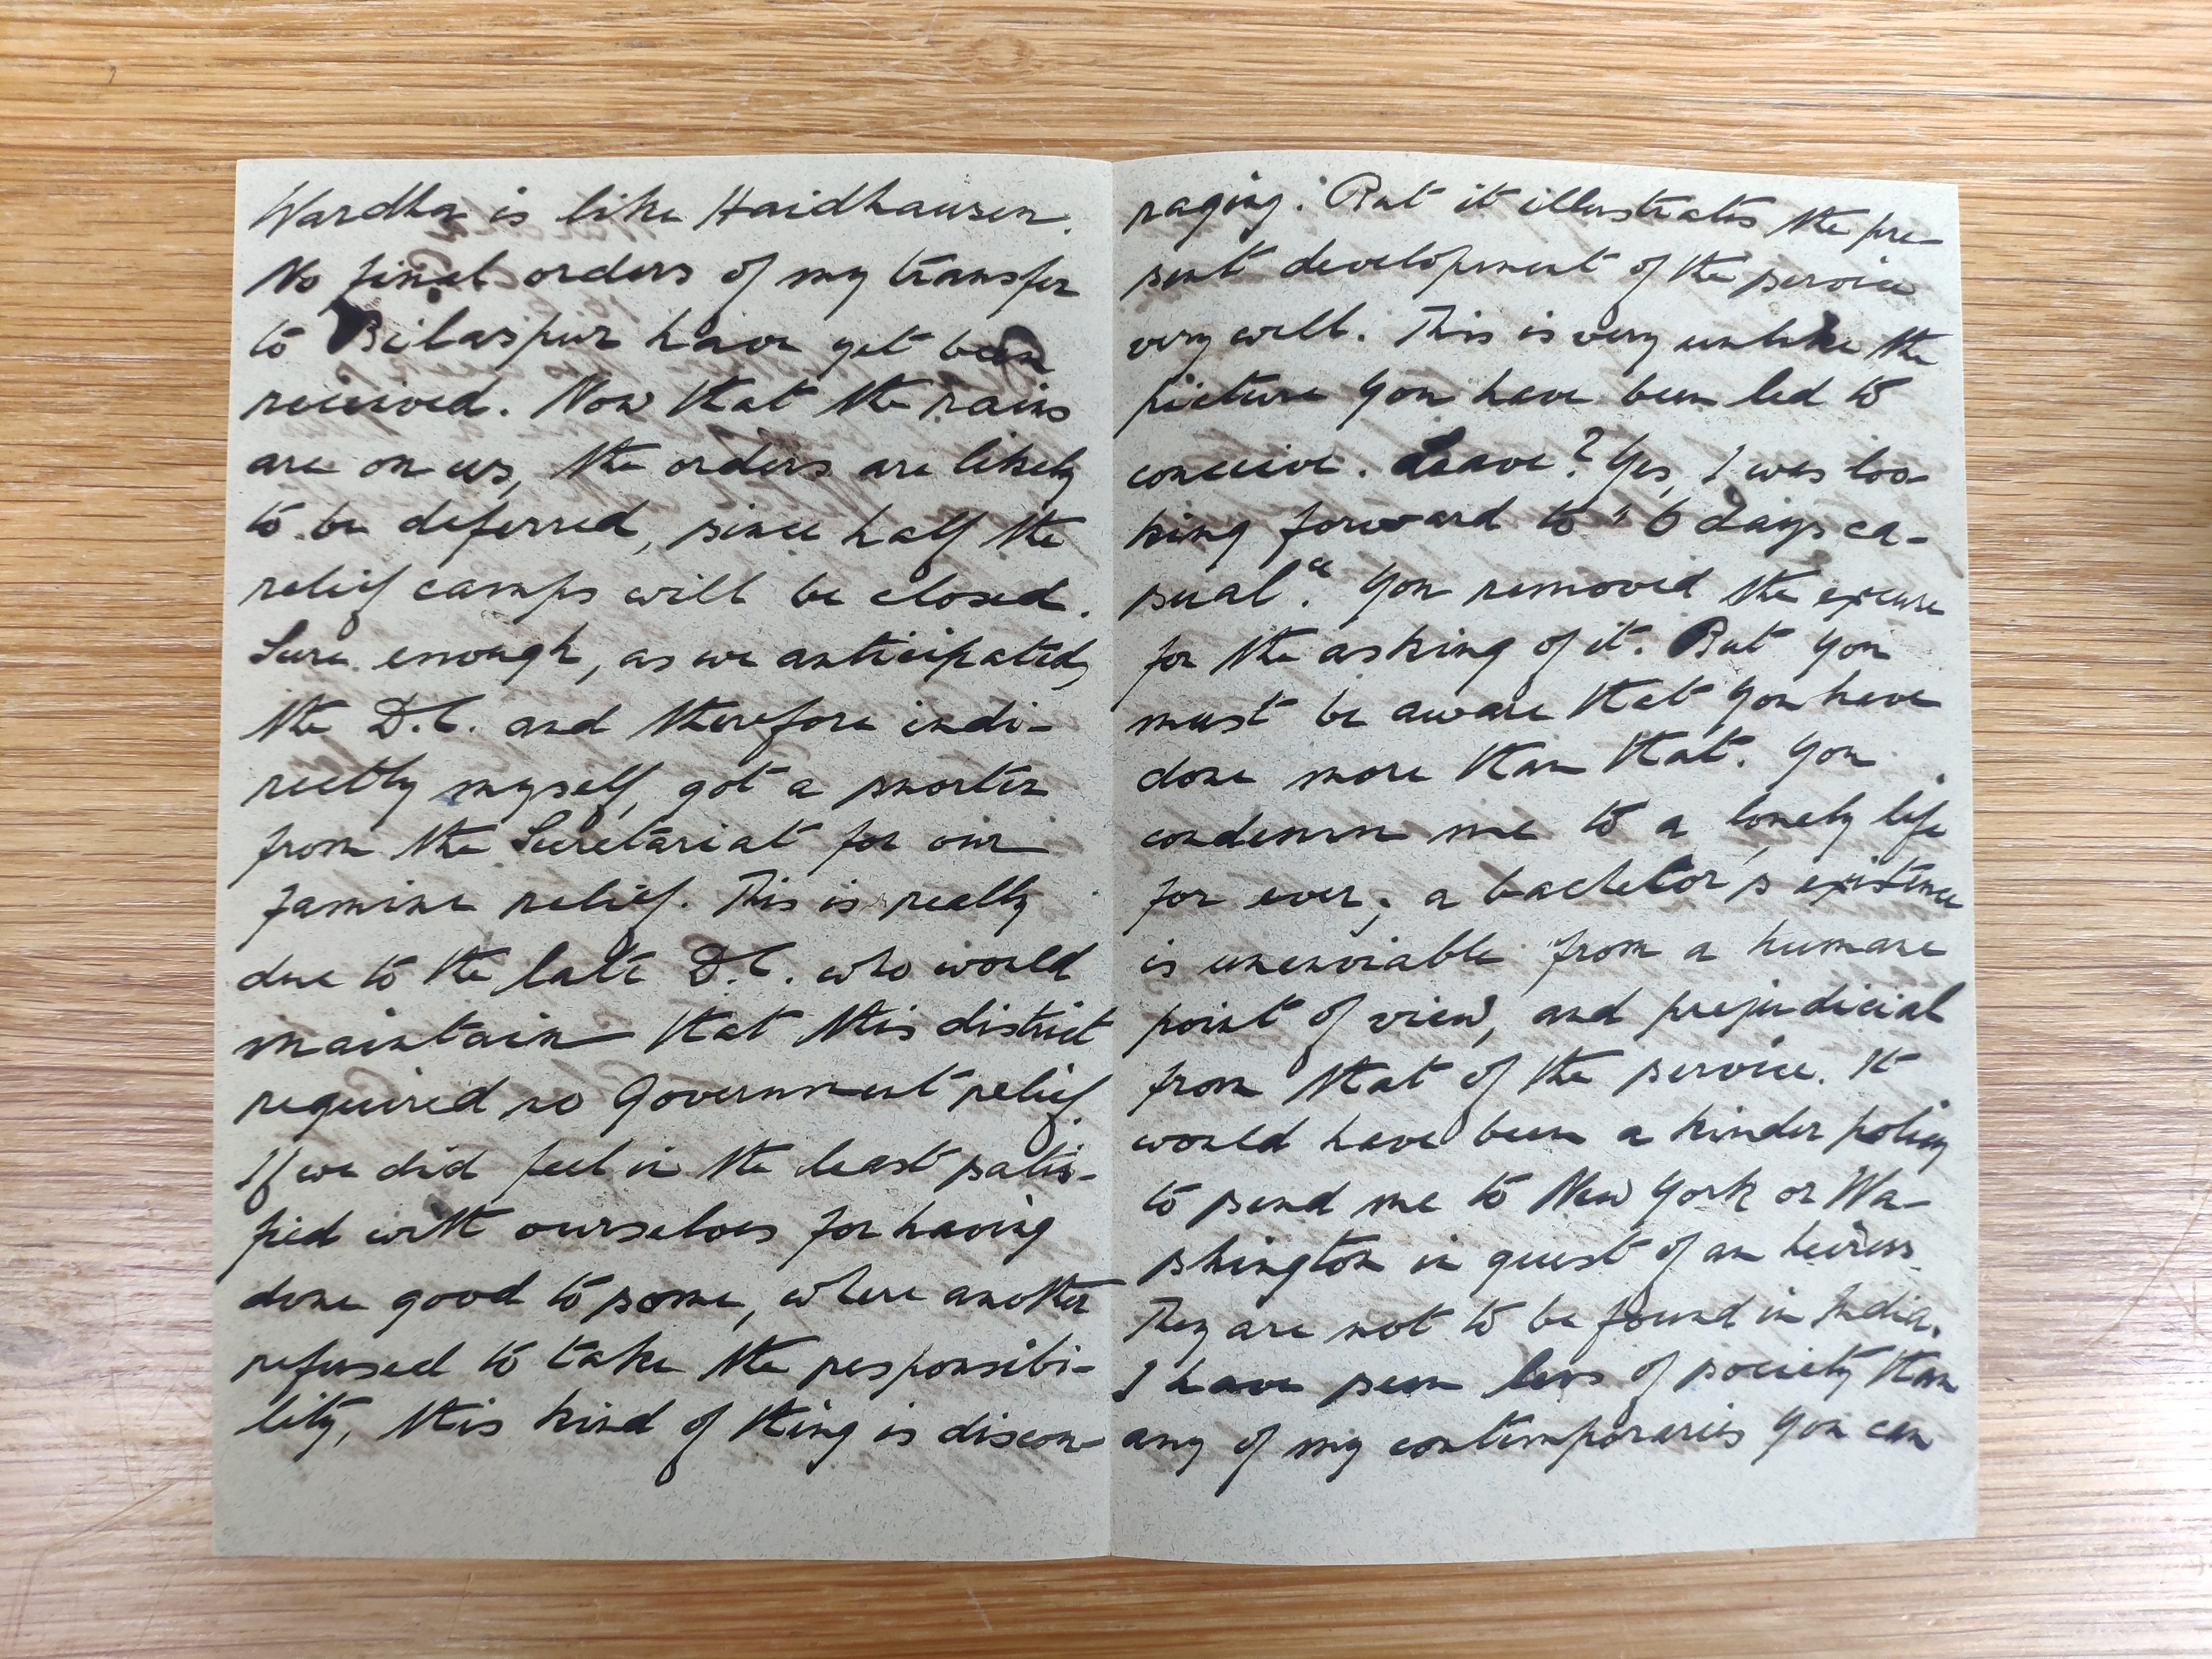 Wardha is like Haidhausen.
No final orders of my transfer
to Bilaspur have yet been
received. Now that the rains
are on us, the orders are likely
to be deferred, since half the
relief camps will be closed.
Sure enough, as we anticipated,
the D.C. and therefore indi-
rectly myself, got a snorter
from the Secretariat for our
famine relief. This is really
due to the late D.C. who would
maintain that this district
required no Government relief.
If we did feel in the least satis-
fied with ourselves for having
done good to some, where another
refused to take the responsibi-
lity, this kind of thing is discou-
raging. But it illustrates the pre-
sent development of the service
very well. This is very unlike the
picture you have been led to
conceive. Leave? Yes, I was loo-
king forward to "6 days ca-
sual". You removed the excuse
for the asking of it. But you
must be aware that you have
done more than that. You
condemn me to a lonely life
for ever; a bachelor's existence
is unenviable from a humane
point of view, and prejudicial
from that of the service. It
would have been a kinder policy
to send me to New York or Wa-
shington in quest of an heiress.
They are not to be found in India.
I have seen less of society than
any of my contemporaries you can